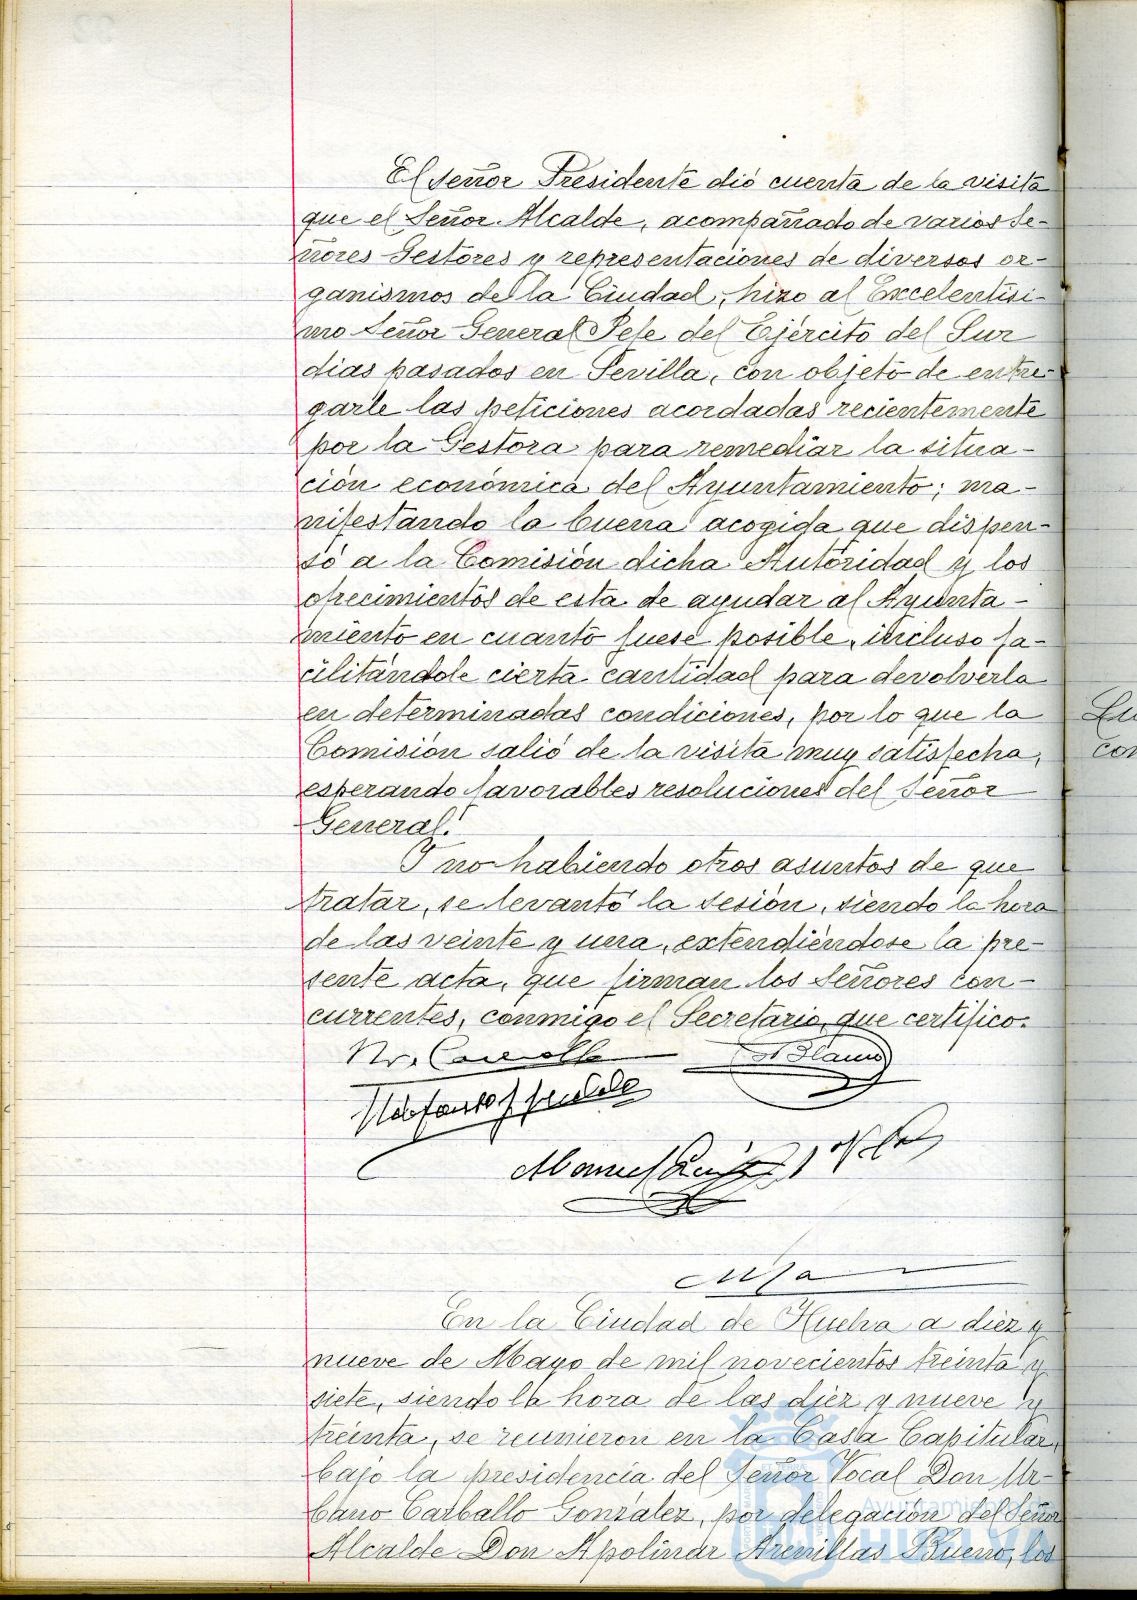 El señor Presidente dió cuenta de la visita
que el Señor Alcalde, acompañado de varios Se-
ñores Gestores y representaciones de diversos or-
ganismos de la Ciudad, hizo al Excelentísi-
mo Señor General Jefe del Ejército del Sur
dias pasados en Sevilla, con objeto de entre-
garle las peticiones acordadas recientemente
por la Gestora para remediar la situa-
ción económica del Ayuntamiento; ma-
nifestando la buena acogida que dispen-
só a la Comisión dicha Autoridad y los
ofrecimientos de esta de ayudar al Ayunta-
miento en cuanto fuese posible, incluso fa-
cilitándole cierta cantidad para devolverla
en determinadas condiciones, por lo que la
Comisión salió de la visita muy satisfecha,
esperando favorables resoluciones del Señor
General.
Y no habiendo otros asuntos de que
tratar, se levantó la sesión, siendo la hora
de las veinte y una, extendiéndose la pre-
sente acta, que firman los Señores con-
currentes, conmigo el Secretario, que certifico.
Blanco
Manuel
En la Ciudad de Huelva a diez y
nueve de Mayo de mil novecientos treinta y
siete, siendo la hora de las diez y nueve y
treinta, se reunieron en la Casa Capitular,
bajo la presidencia del Señor Vocal Don Ur-
bano Carballo González, por delegación del Señor
Alcalde Don Apolinar Arenillas Bueno, los
Ayuntamiento de
HUELVA